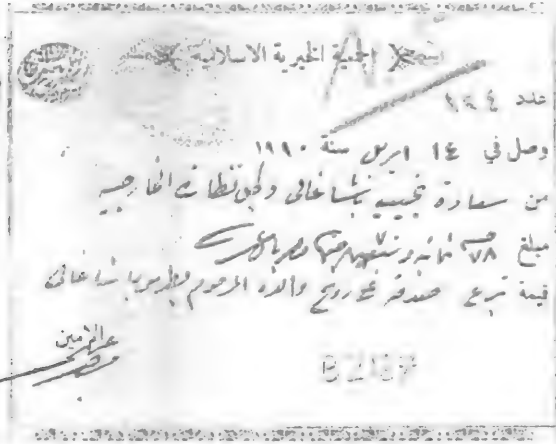 الجمعية الخيرية الاسلامية
عدد ١٢٤
وصل في ١٤ ابريل سنة ١٩١٠
من سعادة نجيب باشا غالى وكيل نظارة الخارجيه
مبلغ ٧٨ ثمانيه وسبعون جنيها مصريا
قيمة تبرع صدقه على روح والده المرحوم بطرس باشا غالى
عن الامين